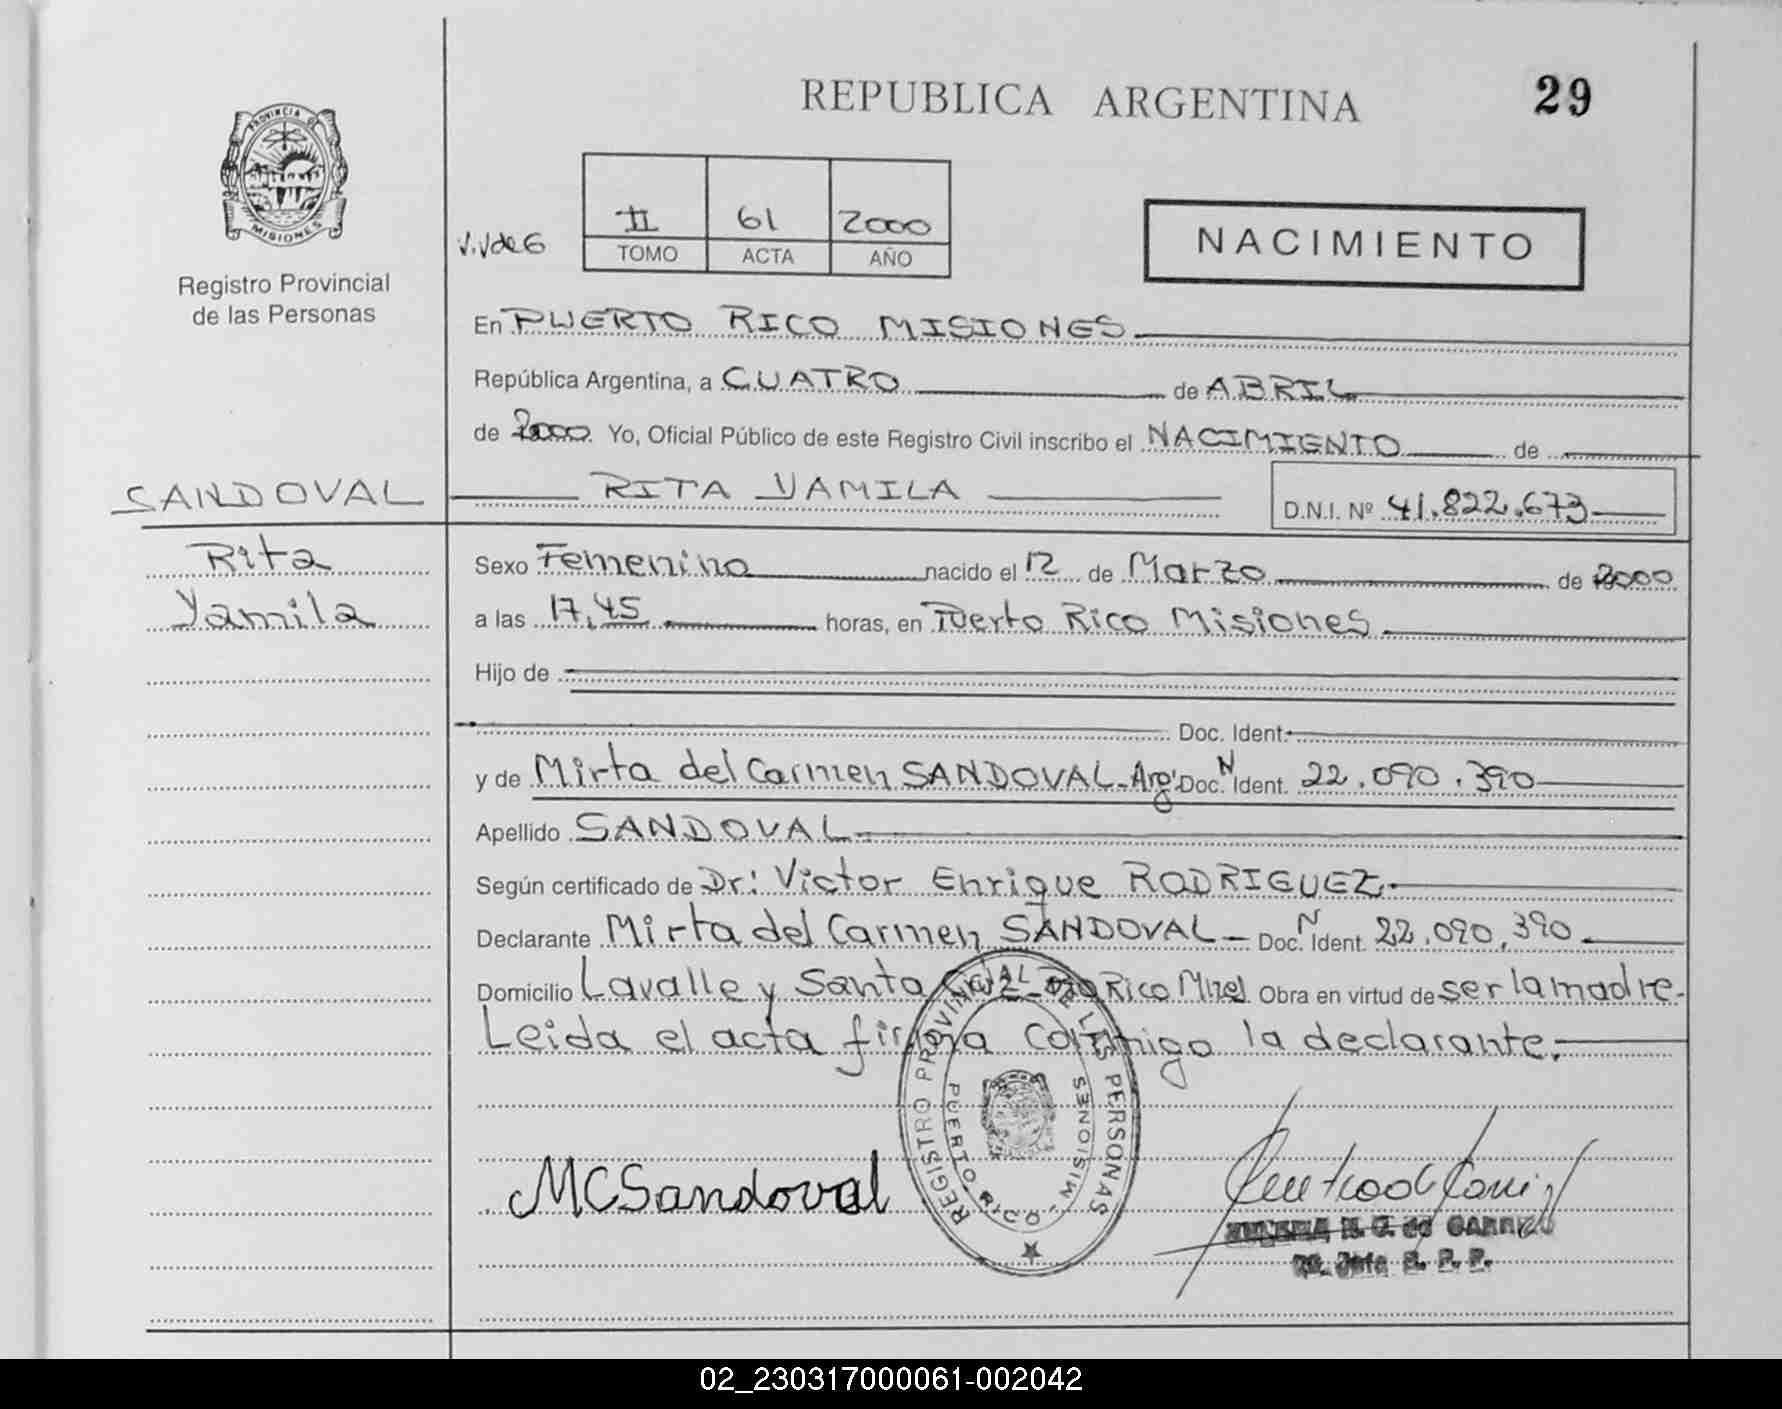 REPUBLICA ARGENTINA 29
PROVINCIA D MISIONES
Registro Provincial
de las Personas
V.V de G
II 61 2000
TOMO ACTA AÑO
NACIMIENTO
En PUERTO RICO MISIONES
República Argentina, a CUATRO de ABRIL
de 2000. Yo, Oficial Público de este Registro Civil inscribo el NACIMIENTO de
SANDOVAL RITA YAMILA D.N.I. Nº 41.822.673
Rita Sexo Femenino nacido el 12 de Marzo de 2000
Yamila a las 17,45 horas, en Puerto Rico Misiones
Hijo de
Doc. Ident.
y de Mirta del Carmen SANDOVAL-Arg. Doc. N Ident. 22.090.390
Apellido SANDOVAL
Según certificado de Dr: Victor Enrique RODRIGUEZ.
Declarante Mirta del Carmen SANDOVAL - Doc. N Ident. 22.090.390
Domicilio Lavalle y Santa Cruz - Pto Rico Mnes Obra en virtud de ser la madre.
Leida el acta firma conmigo la declarante.
REGISTRO PROVINCIAL DE LAS PERSONAS
PUERTO RICO - MISIONES
MCSandoval
de
R. P. P.
02_230317000061-002042